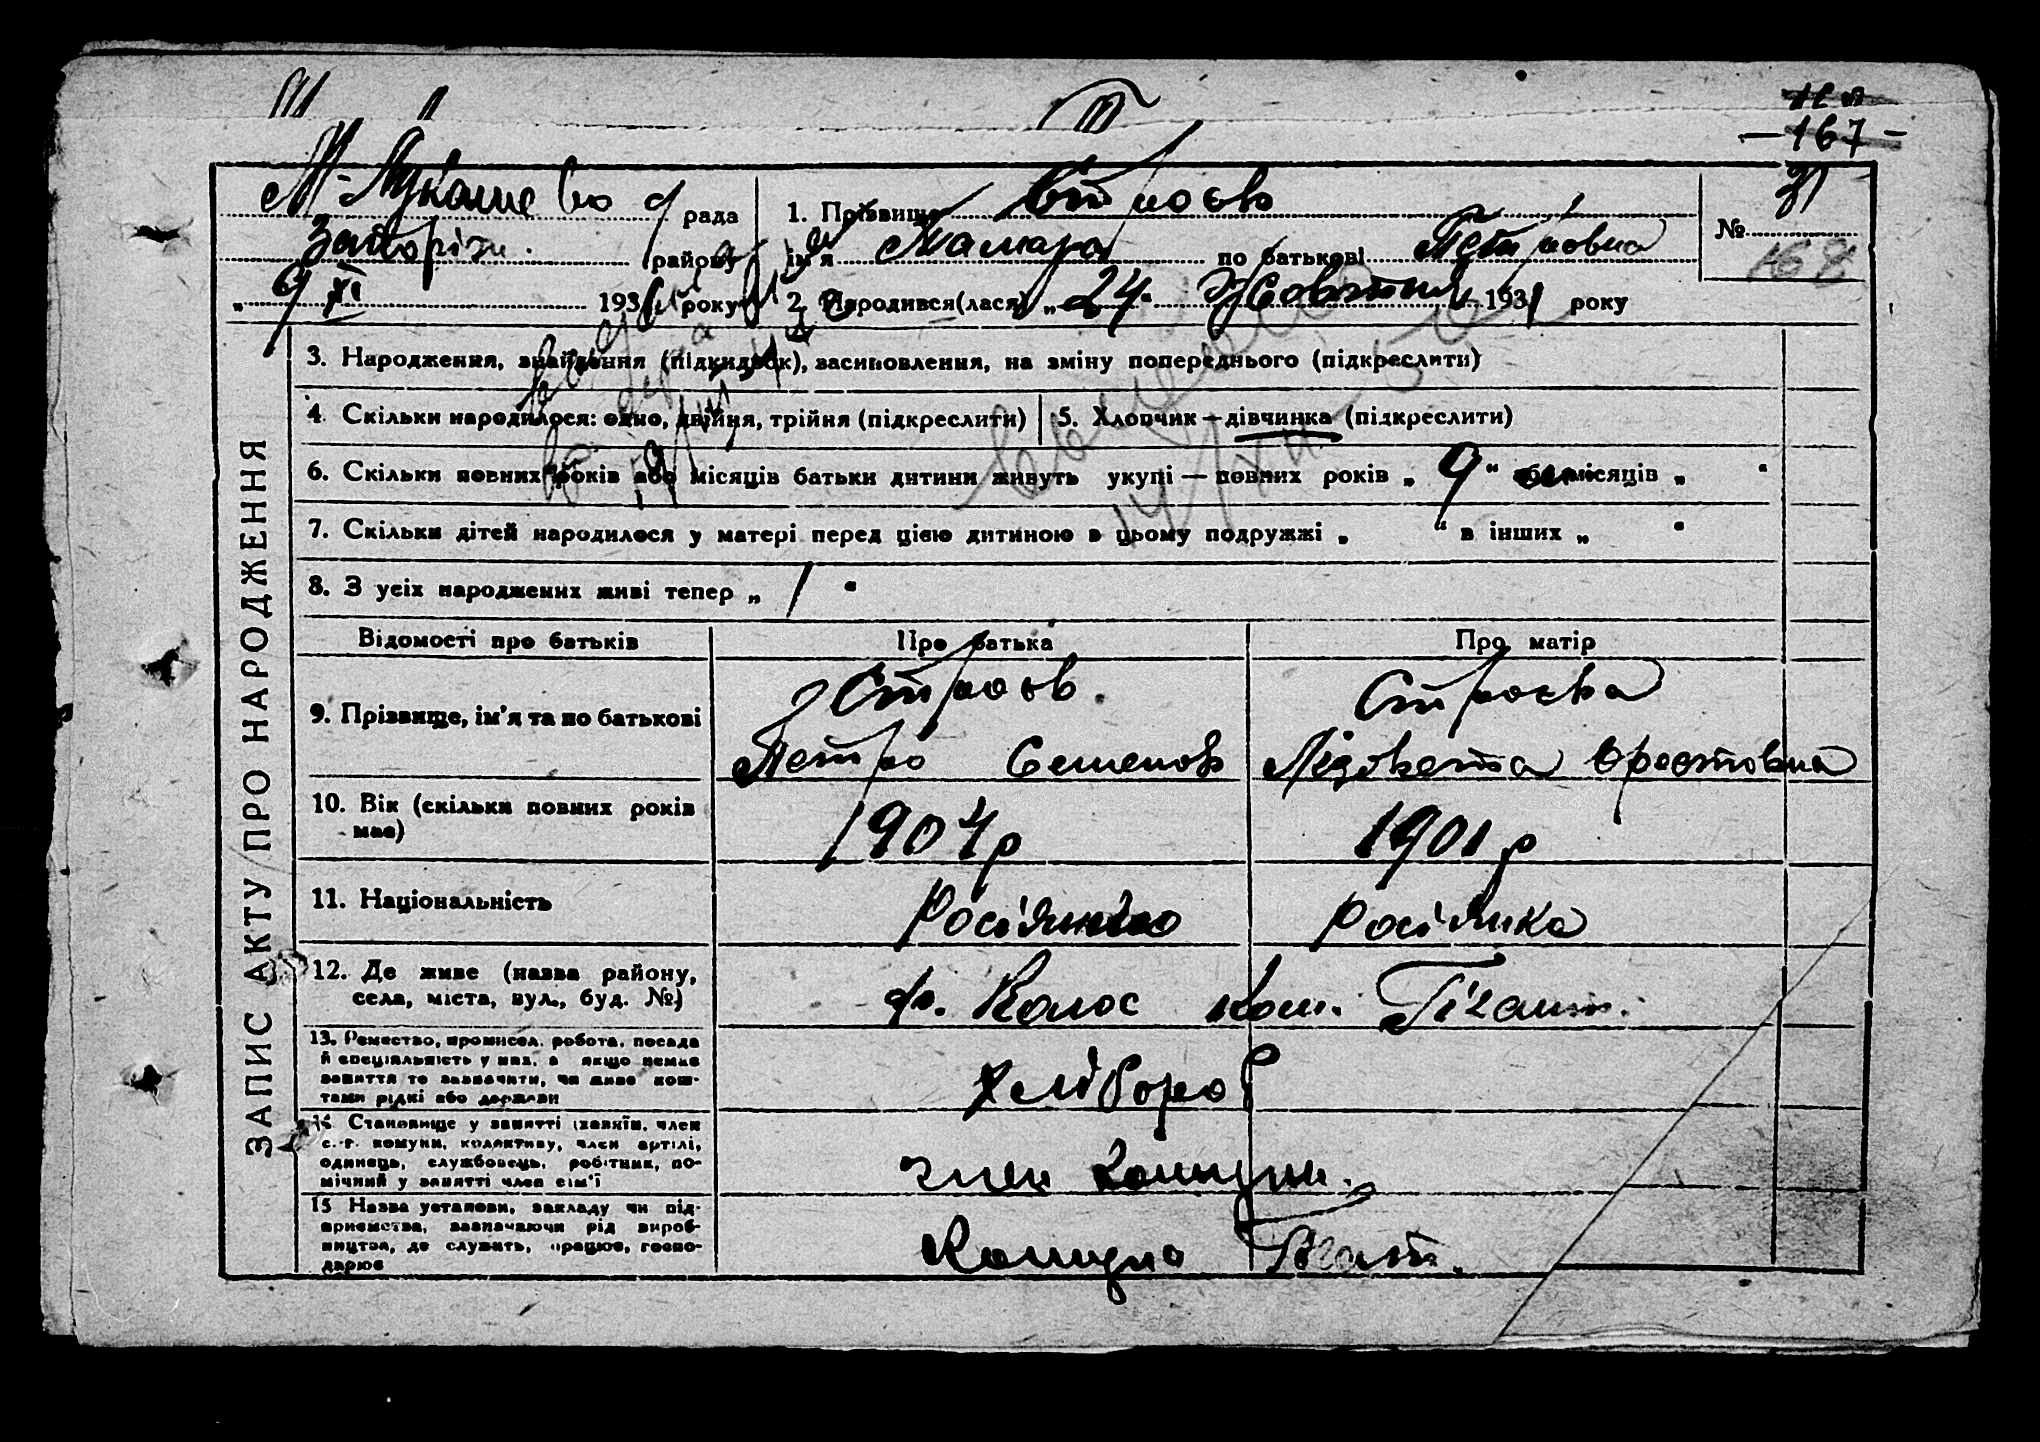 167
М-Лукашево рада
Запоріж. району
„ 9 XI 1931 року
1. Прізвище Строєва
ім'я Тамара по батькові Петровна
2. Народився(лася) „24" Жовтня 1931 року
№ 31
168
ЗАПИС АКТУ ПРО НАРОДЖЕННЯ
3. Народження, знайдення (підкидьок), засиновлення, на зміну попереднього (підкреслити)
4. Скільки народилося: одно, двійня, трійня (підкреслити) 5. Хлопчик – дівчинка (підкреслити)
6. Скільки повних років або місяців батьки дитини живуть укупі — повних років „ 9 " або місяців „ "
7. Скільки дітей народилося у матері перед цією дитиною в цьому подружжі „ " в інших „ "
8. З усіх народжених живі тепер „ 1 "
Відомості про батьків Про батька Про матір
9. Прізвище, ім'я та по батькові
Строєв Строєва
Петро Семенов Лізовета Орестовна
10. Вік (скільки повних років має)
1904р 1901р
11. Національність Росіянин Росіянка
12. Де живе (назва району, села, міста, вул., буд. №)
Колос Ком. Гігант.
13. Ремество, промисел, робота, посада
й спеціальність у них, а якщо немає
заняття то зазначити, чи живе кош-
тами рідні або держави
Хлібороб
14. Становище у занятті (хазяїн, член
с.-г. комуни, колективу, член артілі,
одинець, службовець, робітник, по-
мічний у занятті член сім'ї
член комуни.
15 Назва установи, закладу чи під-
приємства, зазначаючи рід вироб-
ництва, де служить, працює, госпо-
дарює
Комуна Гігант.